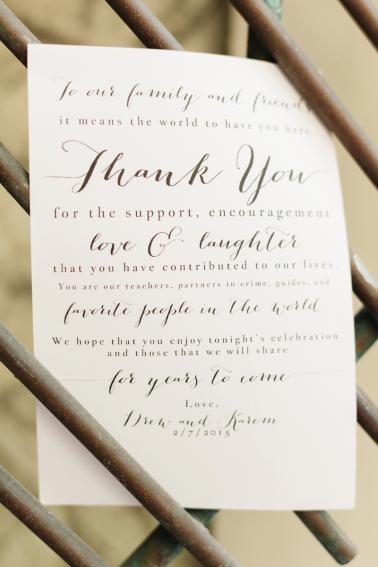 To our family and friends
it means the world to have you here.
Thank You
for the support, encouragement
love & laughter
that you have contributed to our lives.
You are our teachers, partners in crime, guides, and
favorite people in the world.
We hope that you enjoy tonight's celebration
and those that we will share
for years to come
Love,
Drew and Karem
2/7/2015